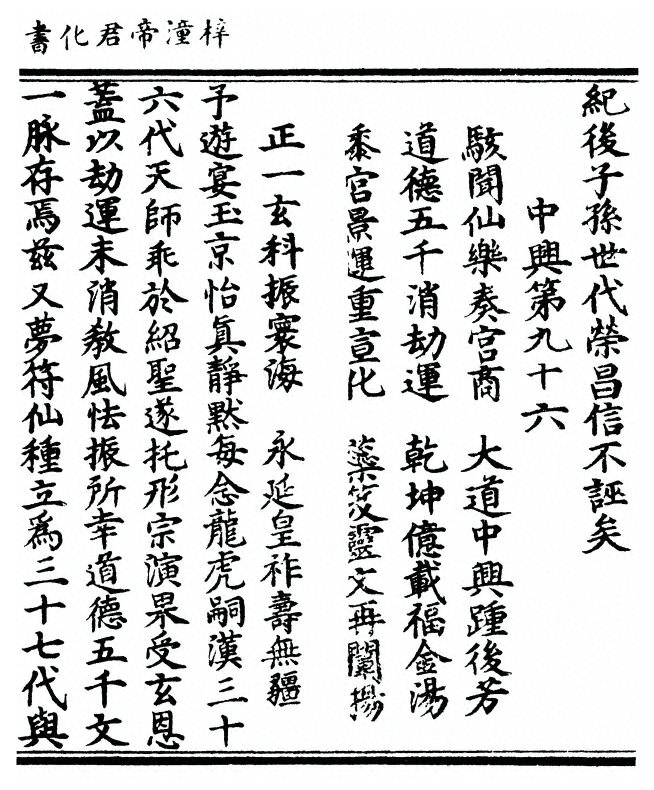 梓潼帝君化書
紀後子孫世代榮昌信不誣矣
中興第九十六
駭聞仙樂奏宮商 大道中興踵後芳
道德五千消劫運 乾坤億載福金湯
黍宮景運重宣化 蘂笈靈文再闡揚
正一玄科振寰海 永延皇祚壽無疆
予遊宴玉京怡真靜默每念龍虎嗣漢三十
六代天師乖於紹聖遂托形宗演果受玄恩
蓋以劫運未消教風怯振所幸道德五千文
一脉存焉茲又夢符仙種立為三十七代與